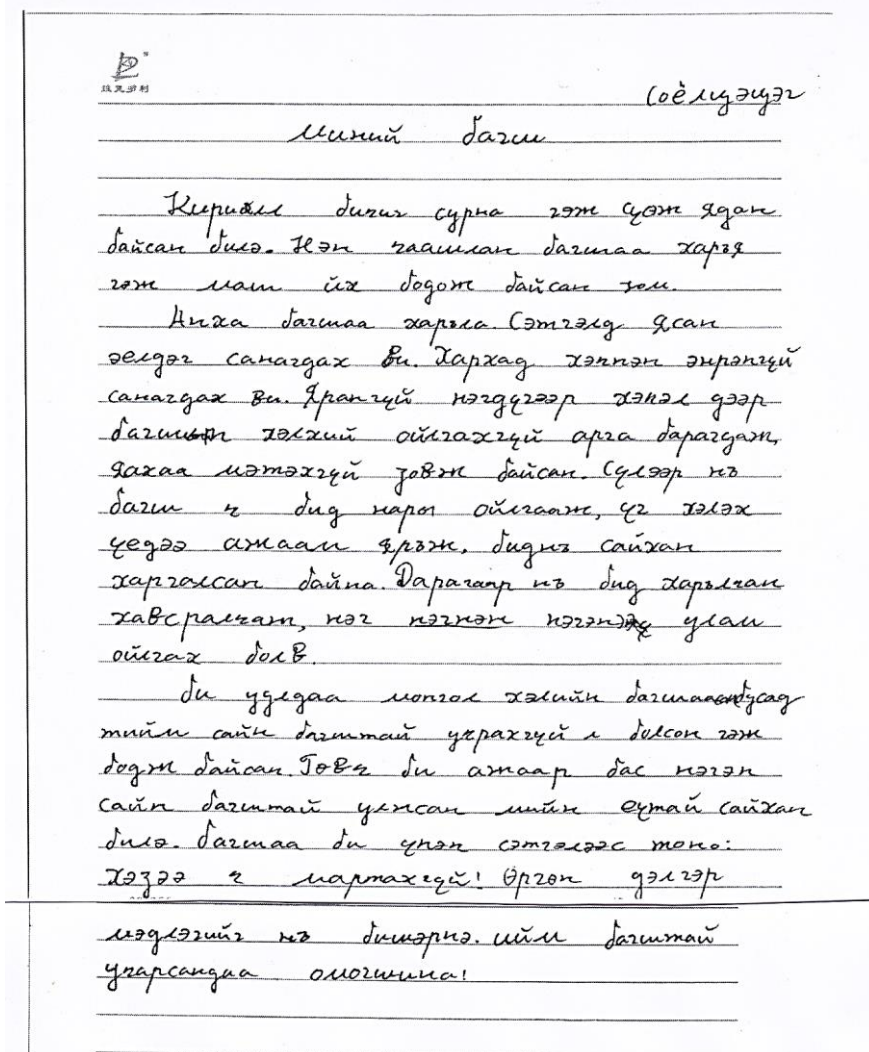 Соёлцэцэг
Миний багш
Кирилл бичиг сурна гэж сүож ядан
байсан билэ. Нэн чаашлан багшаа харъя
гэж маш их бодож байсан юм.
Анха багшаа харъла. Сэтгэлд ясан
эелдэг санагдах ви. Хархад хэппэн энрэпгүй
санагдах ви. Ярангүй нэгдүгээр хэпэл дээр
багшын хэлхий ойлгахгүй арга барагдаж,
яахаа мэтэхгүй зовж байсан. Сүлээр нъ
багш ч бид нары ойлгааж, үг хэлэх
үедээ ажаам яръж, биднъ сайхан
харгалсан байна. Дарагаар нъ бид харълчан
хавсралчаж, нэг нэгнэн нэгэнээ улам
ойлгах болв.
Би удлдаа монгол хэлийн багшааа бусад
тийм сайн багштай учрахгүй л болсон гэж
бодж байсан. Товч би ажаар бас нэгэн
сайн багштай улнсан мийн ёутай сайхан
билэ. Багшаа би үнэн сэтгэлээс тоно:
Хэзээ ч мартахгүй! Өргөн дэлгэр
мэдлэгийг нъ бишэрнэ. ийм багштай
учарсандаа омогшина!